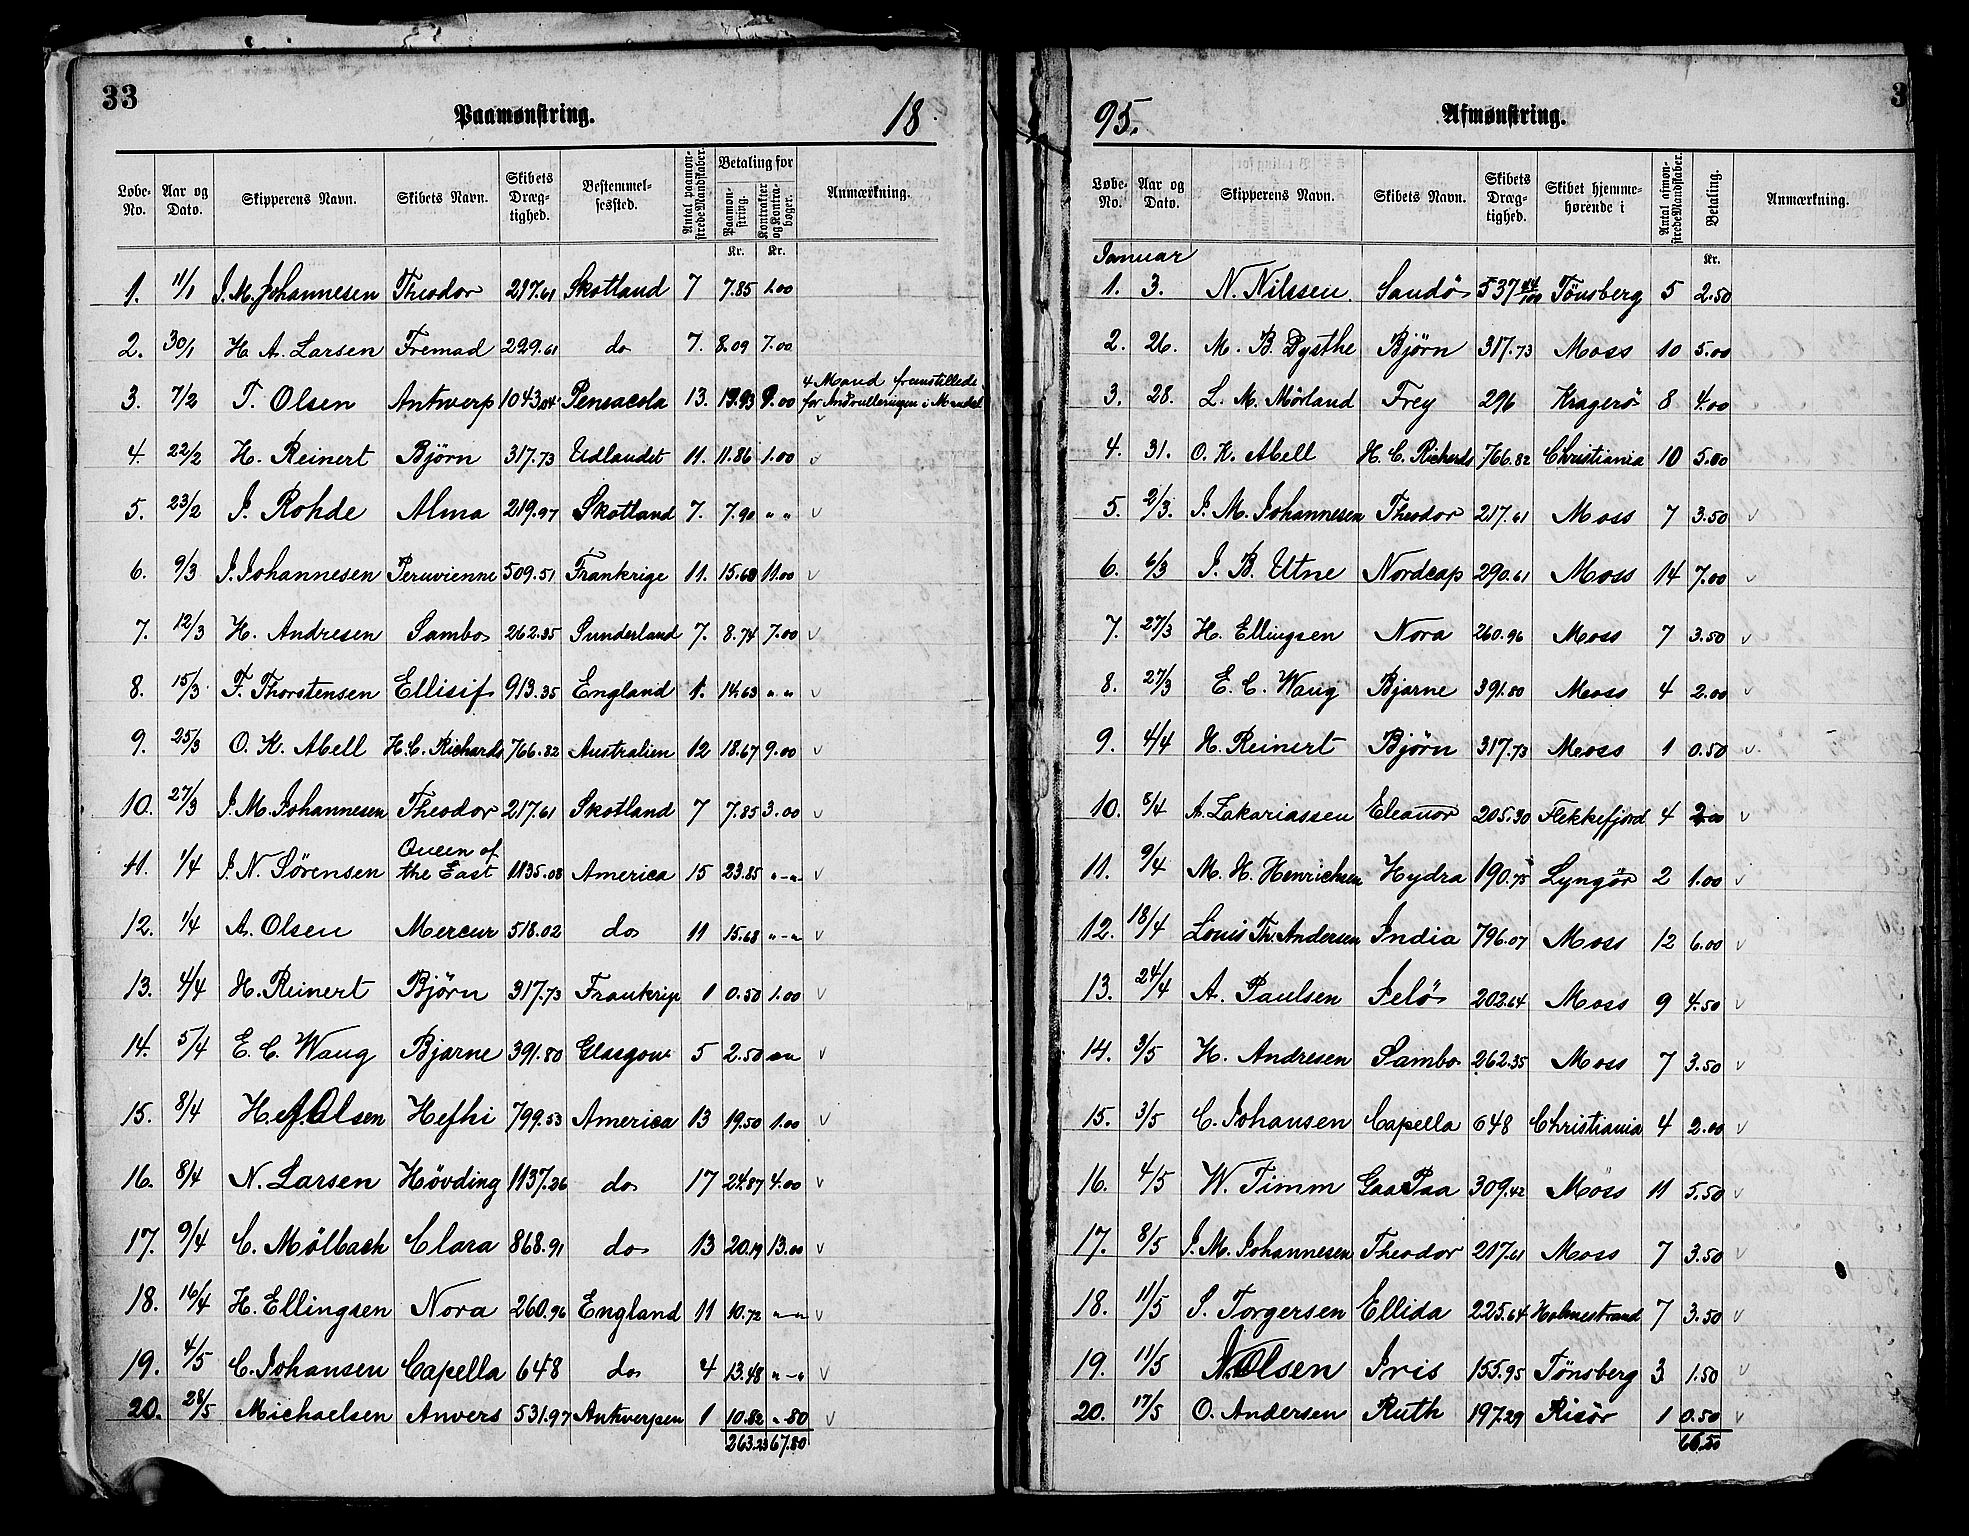 33
Paamønstring.
18
Løbe-No. Aar og Dato. Skipperens Navn. Skibets Navn. Skibets Dræg-tighed. Bestemmel-sessted. Antal paamøn-strede Mandskaber. Betaling for Paamøn-string. Kontrakter og Kontra-bøger. Anmærkning.
Kr. Kr.
1. 11/1 J. M. Johannesen Theodor 217.61 Skotland 7 7.85 1.00
2. 30/1 H. A. Larsen Fremad 229.61 do 7. 8.09 7.00
3. 7/2 T. Olsen Antwerp 1043.04 Pensacola 13. 19.93 9.00 4 Mand fremstillede for Indrulleringen i Mandal
4. 22/2 H. Reinert Bjørn 317.73 Udlandet 11. 11.86 1.00 v
5. 23/2 J. Rohde Alma 219.97 Skotland 7. 7.90 " " v
6. 9/3 J. Johannesen Peruvienne 509.51 Frankrige 11. 15.60 11.00 v
7. 12/3 H. Andresen Sambo 262.35 Sunderland 7. 8.74 7.00 v
8. 15/3 F. Thorstensen Ellisif 913.35 England 1. 14.63 " " v
9. 25/3 O. K. Abell H. C. Richards 766.82 Australien 12 18.67 9.00 v
10. 27/3 J. M. Johannesen Theodor 217.61 Skotland 7 7.85 3.00 v
11. 1/4 J. N. Sørensen Queen of the East 1135.08 America 15 23.85 "-" v
12. 1/4 A. Olsen Mercur 518.02 do 11 15.68 "-" v
13. 4/4 H. Reinert Bjørn 317.73 Frankrig 1 0.50 1.00 v
14. 5/4 E. C. Waug Bjarne 391.80 Glasgow 5 2.50 "" v
15. 8/4 H. A. Olsen Hefhi 799.53 America 13 19.50 1.00 v
16. 8/4 N. Larsen Høvding 1137.26 do 17 24.87 4.00 v
17. 9/4 C. Mölbach Clara 868.91 do 13 20.19 13.00 v
18. 16/4 H. Ellingsen Nora 260.96 England 11 10.72 "-" v
19. 4/5 C. Johansen Capella 648 do 4 13.48 "-" v
20. 28/5 Michaelsen Anvers 531.97 Antwerpen 1 10.82 ".80 v
263.23 67.80
95.
Afmønstring.
3
Løbe-No. Aar og Dato. Skipperens Navn. Skibets Navn. Skibets Dræg-tighed. Skibet hjemme-hørende i Antal afmøn-strede Mandskaber. Betaling. Anmærkning.
Kr.
Januar
1. 3. N. Nilssen Sandö 537 44/100 Tönsberg 5 2.50
2. 26. M. B. Dysthe Björn 317.73 Moss 10 5.00
3. 28. L. M. Mörland Frey 296 Kragerö 8 4.00
4. 31. O. K. Abell H. C. Richards 766.82 Christiania 10 5.00
5. 2/3. J. M. Johannesen Theodor 217.61 Moss 7 3.50 v
6. 6/3 J. B. Utne Nordcap 290.61 Moss 14 7.00 v
7. 27/3 H. Ellingsen Nora 260.96 Moss 7 3.50 v
8. 27/3 E. C. Waug Bjarne 391.80 Moss 4 2.00 v
9. 4/4 H. Reinert Björn 317.73 Moss 1 0.50 v.
10. 8/4 A. Zakariassen Eleanor 205.30 Flekkefjord 4 2.00 v
11. 9/4 M. H. Henrichsen Hydra 190.75 Lyngör 2 1.00 v
12. 18/4 Louis Th. Andersen India 796.07 Moss 12 6.00 v
13. 24/4 A. Paulsen Selö 202.64 Moss 9 4.50 v
14. 3/5 H. Andresen Sambo 262.35 Moss 7 3.50 v
15. 3/5 C. Johansen Capella 648 Christiania 4 2.00 v
16. 4/5 W. Timm Gaa Paa 309.42 Moss 11 5.50 v
17. 8/5 J. M. Johannesen Theodor 217.61 Moss 7 3.50 v
18. 11/5 S. Torgersen Ellida 225.64 Holmestrand 7 3.50 v
19. 11/5 N. Olsen Iris 155.95 Tönsberg 3 1.50 v
20. 17/5 O. Andersen Ruth 197.29 Risör 1 0.50 v